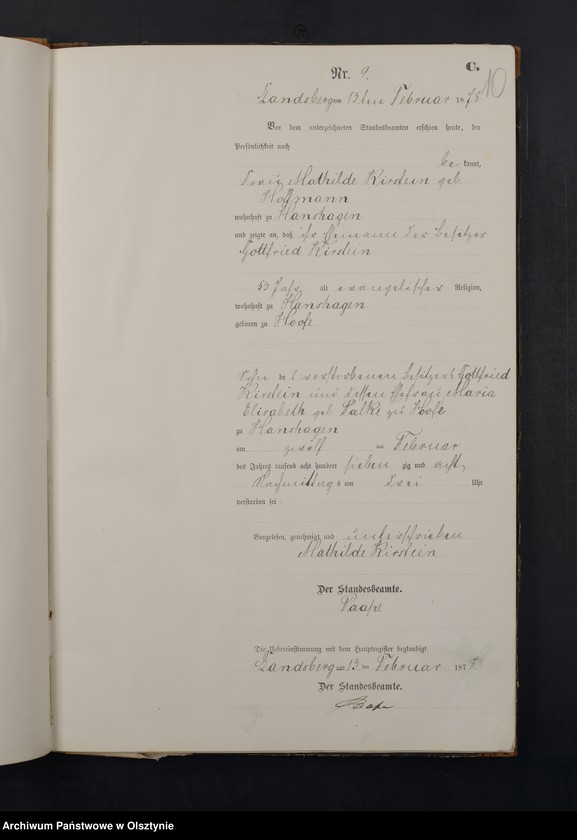 C.
10
Nr. 9.
Landsberg am 13ten Februar 1878
Vor dem unterzeichneten Standesbeamten erschien heute, der
Persönlichkeit nach
be kannt,
Frau Mathilde Kirstein geb.
Hoffmann
wohnhaft zu Hanshagen
und zeigte an, daß ihr Ehemann der Besitzer
Gottfried Kirstein
53 Jahr alt evangelischer Religion,
wohnhaft zu Hanshagen
geboren zu Hoofe
Sohn des verstorbenen Besitzers Gottfried
Kirstein und dessen Ehefrau Maria
Elisabeth geb Valke zu Hoofe
zu Hanshagen
am zwölf ten Februar
des Jahres tausend acht hundert sieben zig und acht,
Nachmittags um drei Uhr
verstorben sei
Vorgelesen, genehmigt und unterschrieben
Mathilde Kirstein
Der Standesbeamte.
Die Uebereinstimmung mit dem Hauptregister beglaubigt
Landsberg am 13 ten Februar 1878
Der Standesbeamte.
Archiwum Państwowe w Olsztynie